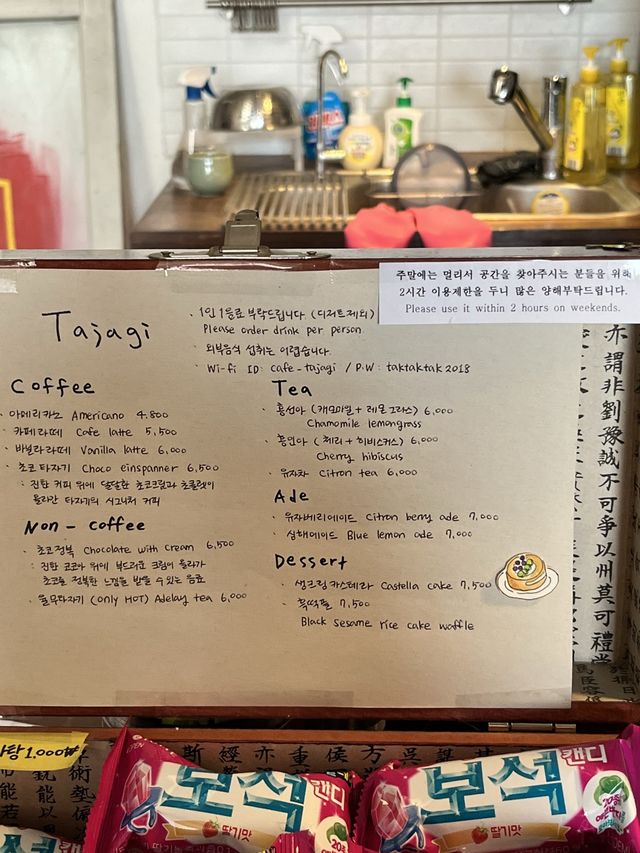 주말에는 멀리서 공간을 찾아주시는 분들을 위해
2시간 이용제한을 두니 많은 양해부탁드립니다.
Please use it within 2 hours on weekends.
Tajagi
· 1인 1음료 부탁드립니다. (디저트제외)
Please order drink per person
· 외부음식 섭취는 어렵습니다.
· Wi-fi ID: cafe-tajagi / P.W: taktaktak2018
Coffee
· 아메리카노 Americano 4,800
· 카페라떼 Cafe latte 5,500
· 바닐라라떼 Vanilla latte 6,000
· 초코타자기 Choco einspanner 6,500
: 진한 커피 위에 달달한 초코크림과 초콜렛이
올라간 타자기의 시그니처 커피
Non - coffee
· 초코정복 Chocolate with cream 6,500
: 진한 코코아 위에 부드러운 크림이 올라가
초코를 정복한 느낌을 받을 수 있는 음료
· 율무타자기 (only HOT) Adlay tea 6,000
Tea
· 황선아 (캐모마일 + 레몬그라스) 6,000
Chamomile lemongrass
· 홍연아 (체리 + 히비스커스) 6,000
Cherry hibiscus
· 유자차 Citron tea 6,000
Ade
· 유자베리에이드 Citron berry ade 7,000
· 심해에이드 Blue lemon ade 7,000
Dessert
· 생크림 카스테라 Castella cake 7,500
· 흑떡플 7,500
Black sesame rice cake waffle
亦謂非劉豫誠不可爭以州莫可禮
사탕 1,000₩
보석
캔디
딸기맛
보석
캔디
딸기맛